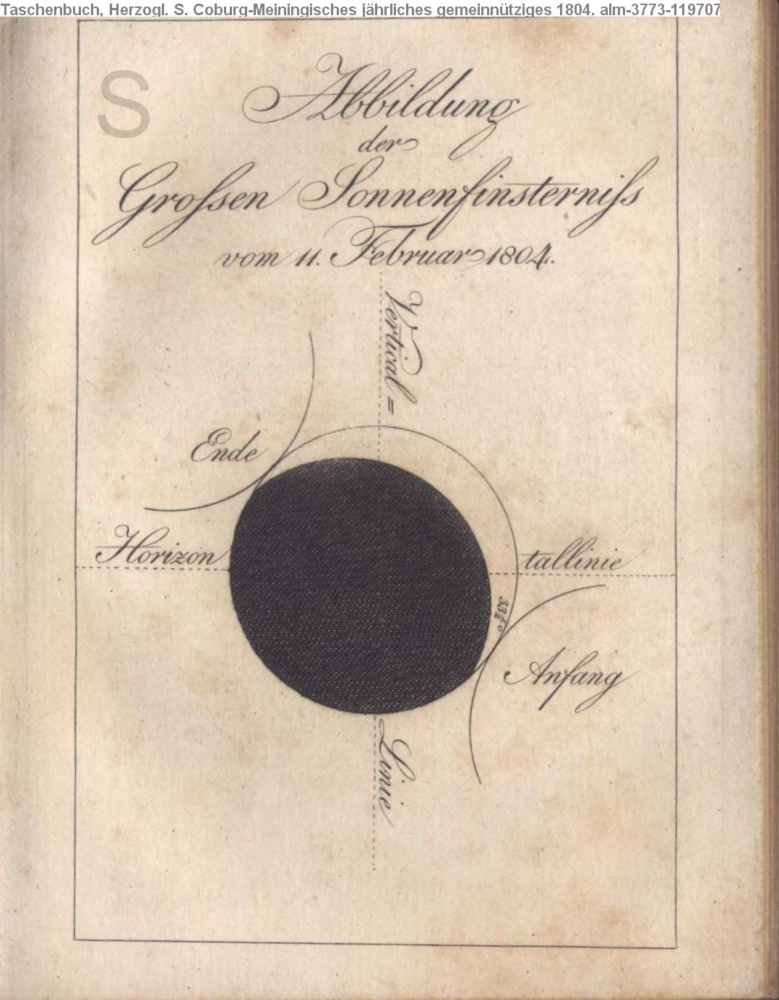 Taschenbuch, Herzogl. S. Coburg-Meiningisches jährliches gemeinnütziges 1804. alm-3773-119707
S
Abbildung
der
Groſsen Sonnenfinsterniſs
vom 11. Februar 1804.
Vertical =
Ende
Horizon
tallinie
33½°
Anfang
Linie